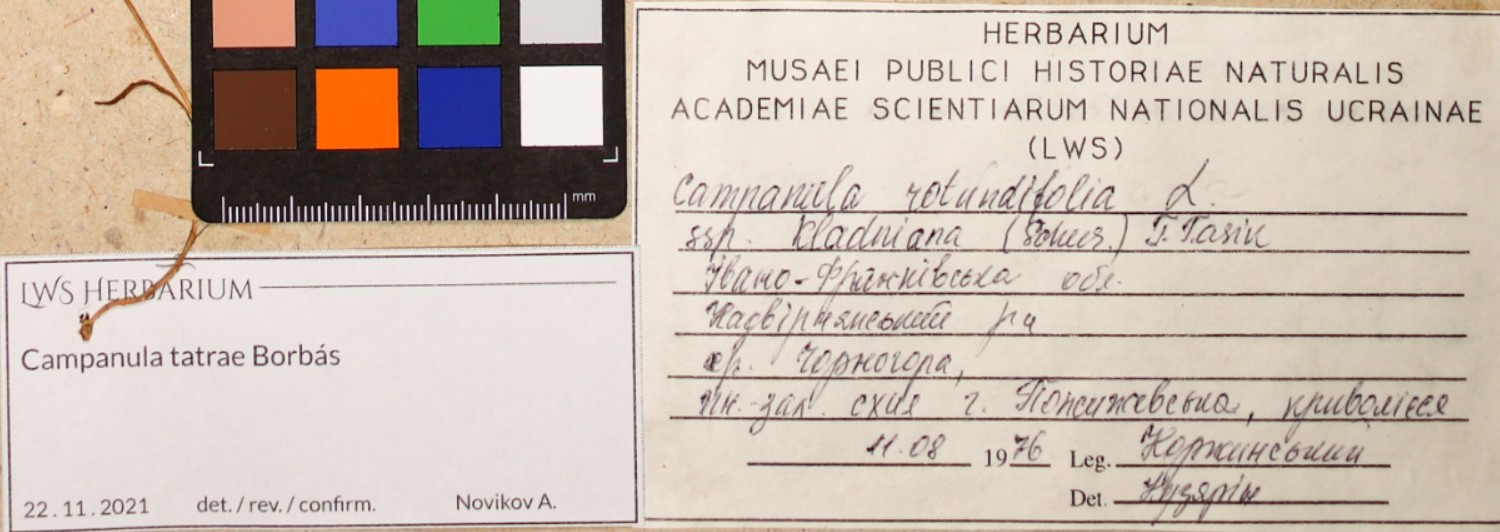 mm
HERBARIUM
MUSAEI PUBLICI HISTORIAE NATURALIS
ACADEMIAE SCIENTIARUM NATIONALIS UCRAINAE
(LWS)
Campanula rotundifolia L.
ssp. kladniana (Schur.) T. Tasin
Івано-Франківська обл.
Надвірнянський р-н
хр. Чорногора,
пн.-зах. схил г. Пожижевська, криволісся
11.08 1976 Leg. Коржинський
Det. Кузярін
LWS HERBARIUM
Campanula tatrae Borbás
22.11.2021 det./rev./confirm. Novikov A.